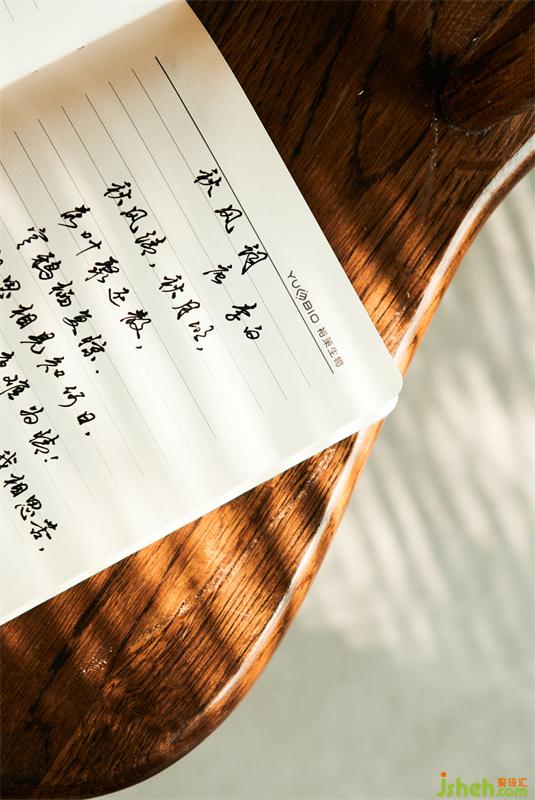 秋风词
唐 李白
秋风清，秋月明，
落叶聚还散，
寒鸦栖复惊.
思相见知何日，
难为情！
我相思苦，
YUCEBIO 裕策生物
聚设汇
jsheh.com